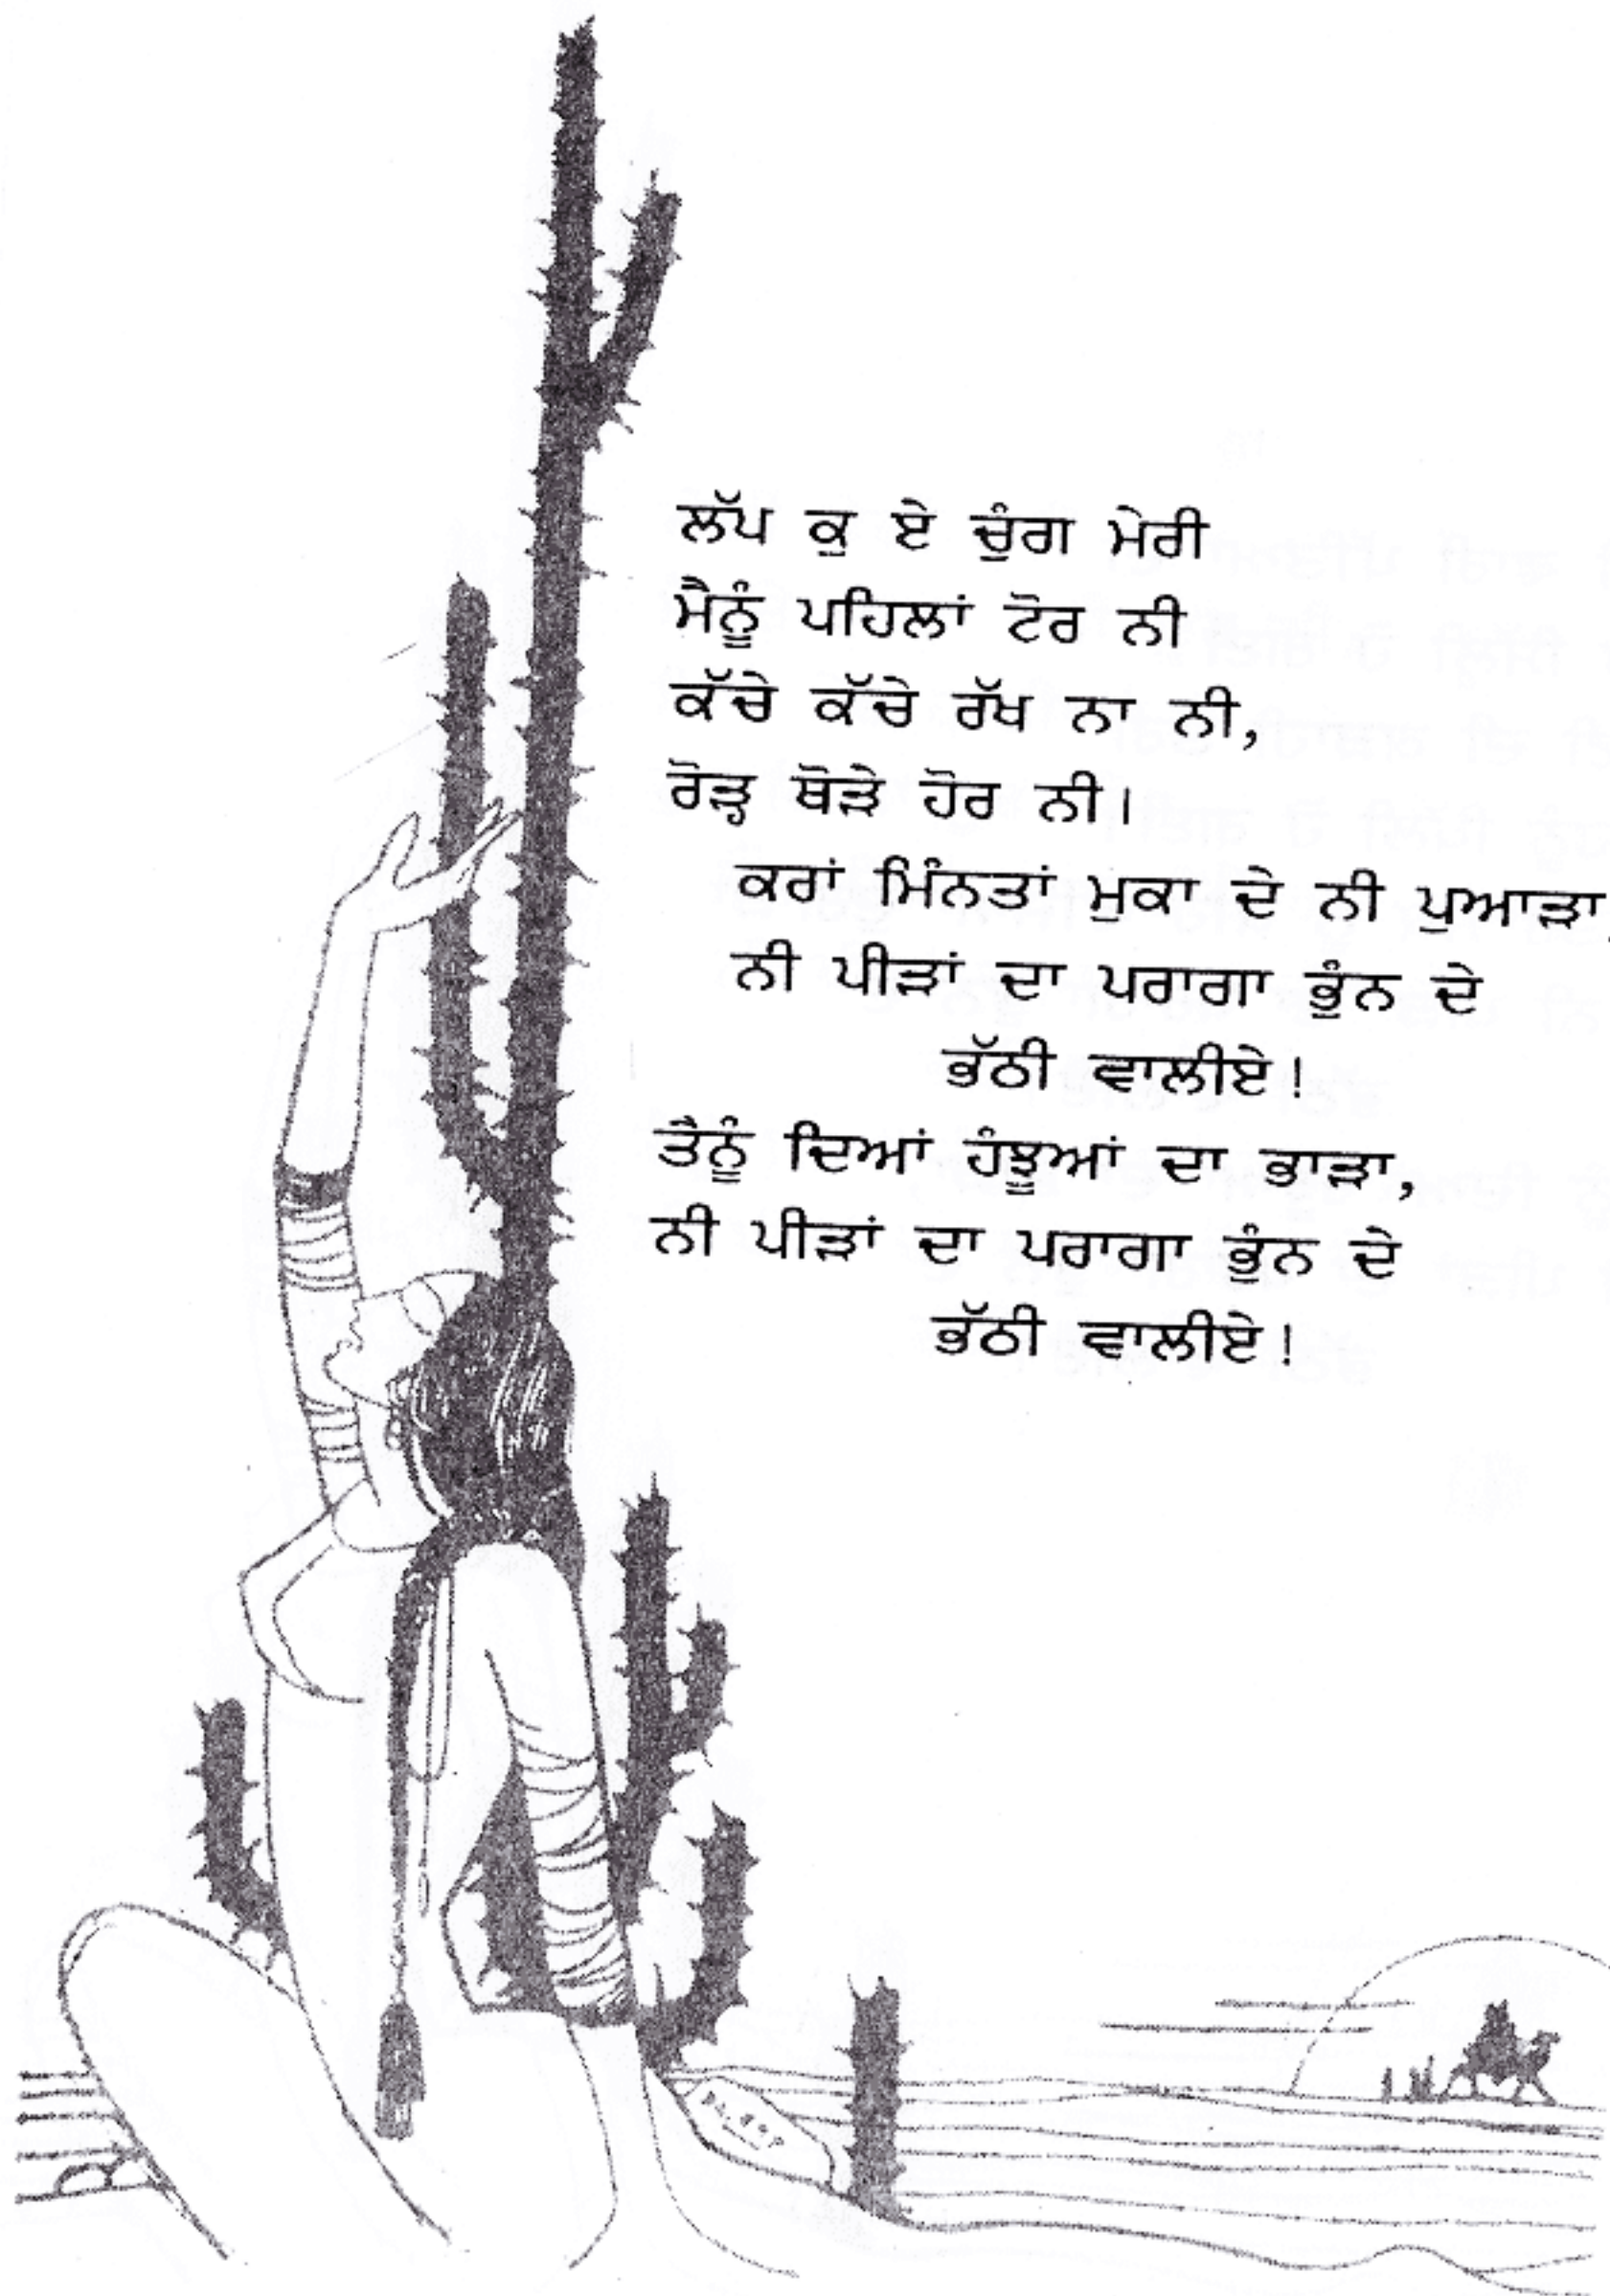 ਲੱਪ ਕੁ ਏ ਚੁੰਗ ਮੇਰੀ
ਮੈਨੂੰ ਪਹਿਲਾਂ ਟੋਰ ਨੀ
ਕੱਚੇ ਕੱਚੇ ਰੱਖ ਨਾ ਨੀ,
ਰੋੜ੍ਹ ਥੋੜੇ ਹੋਰ ਨੀ।
ਕਰਾਂ ਮਿੰਨਤਾਂ ਮੁਕਾ ਦੇ ਨੀ ਪੁਆੜਾ,
ਨੀ ਪੀੜਾਂ ਦਾ ਪਰਾਗਾ ਭੁੰਨ ਦੇ
ਭੱਠੀ ਵਾਲੀਏ!
ਤੈਨੂੰ ਦਿਆਂ ਹੰਝੂਆਂ ਦਾ ਭਾੜਾ,
ਨੀ ਪੀੜਾਂ ਦਾ ਪਰਾਗਾ ਭੁੰਨ ਦੇ
ਭੱਠੀ ਵਾਲੀਏ!